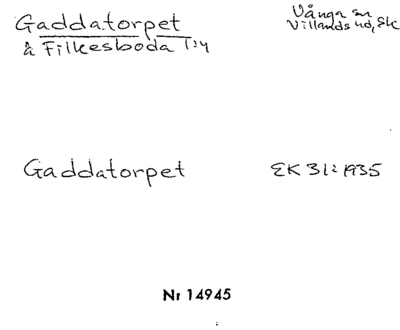 Gaddatorpet
å Filkesboda 1:4
Vånga sn
Villands hd, Sk
Gaddatorpet
EK 31: 1935
Nr 14945